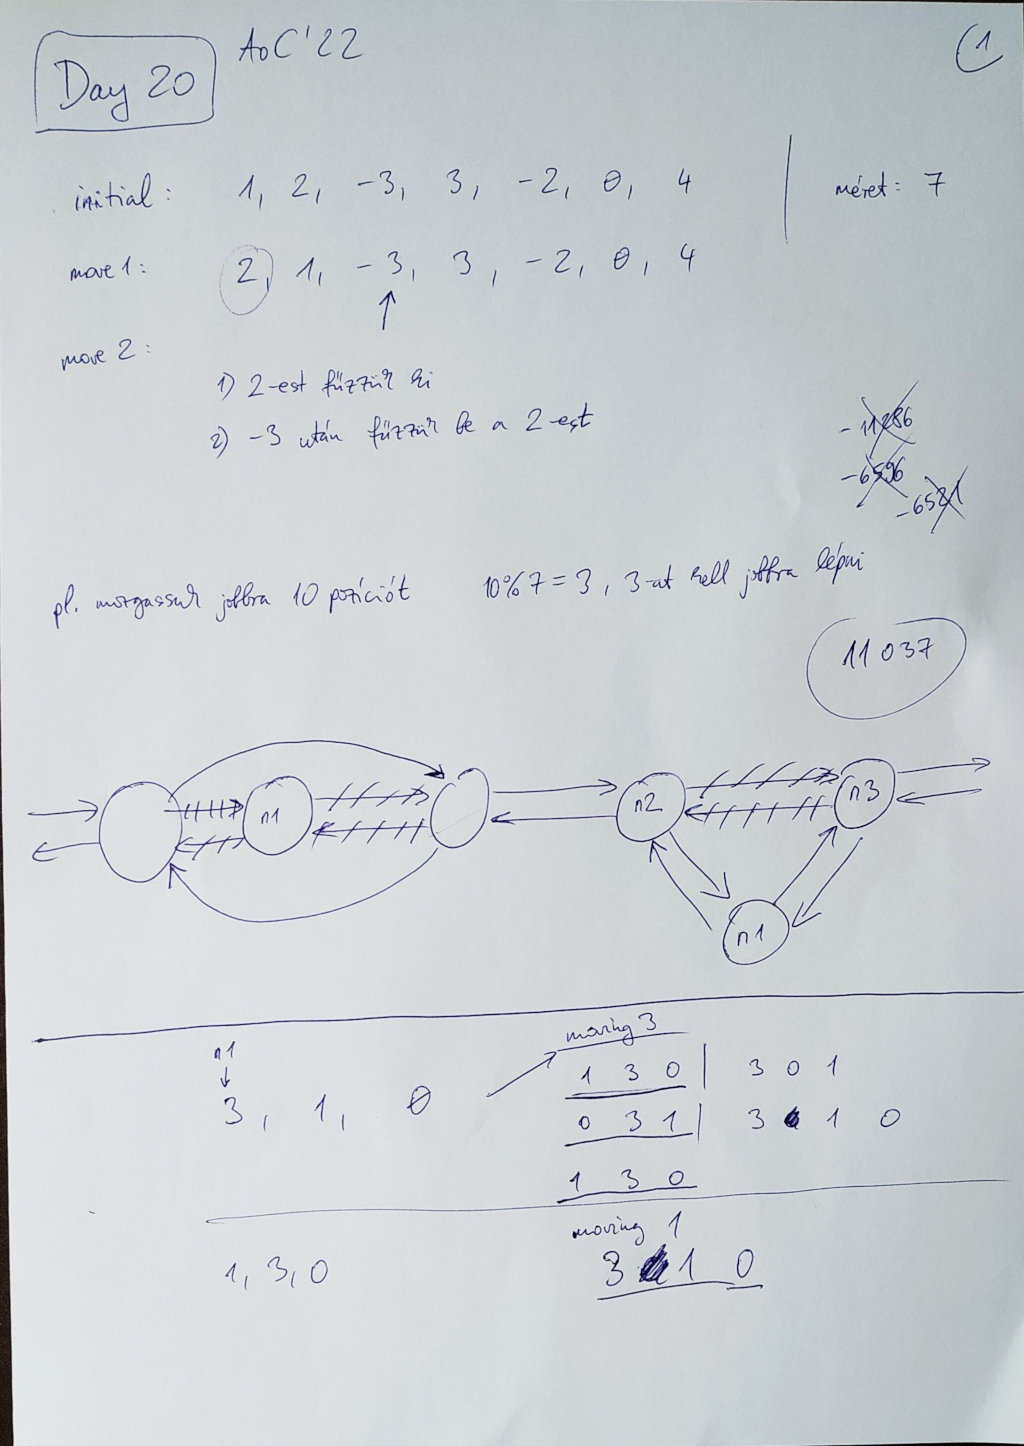 Day 20
AoC'22
1
initial: 1, 2, -3, 3, -2, 0, 4
méret: 7
move 1: 2, 1, -3, 3, -2, 0, 4
move 2:
1) 2-est fűzzük ki
2) -3 után fűzzük be a 2-est
-11286
-6596
-6521
pl. mozgassuk jobbra 10 pozíciót 10%7=3, 3-at kell jobbra lépni
11037
n1 n2 n3
n1
moving 3
n1
3, 1, 0
1 3 0 | 3 0 1
0 3 1 | 3 1 0
1 3 0
moving 1
1, 3, 0
3 1 0